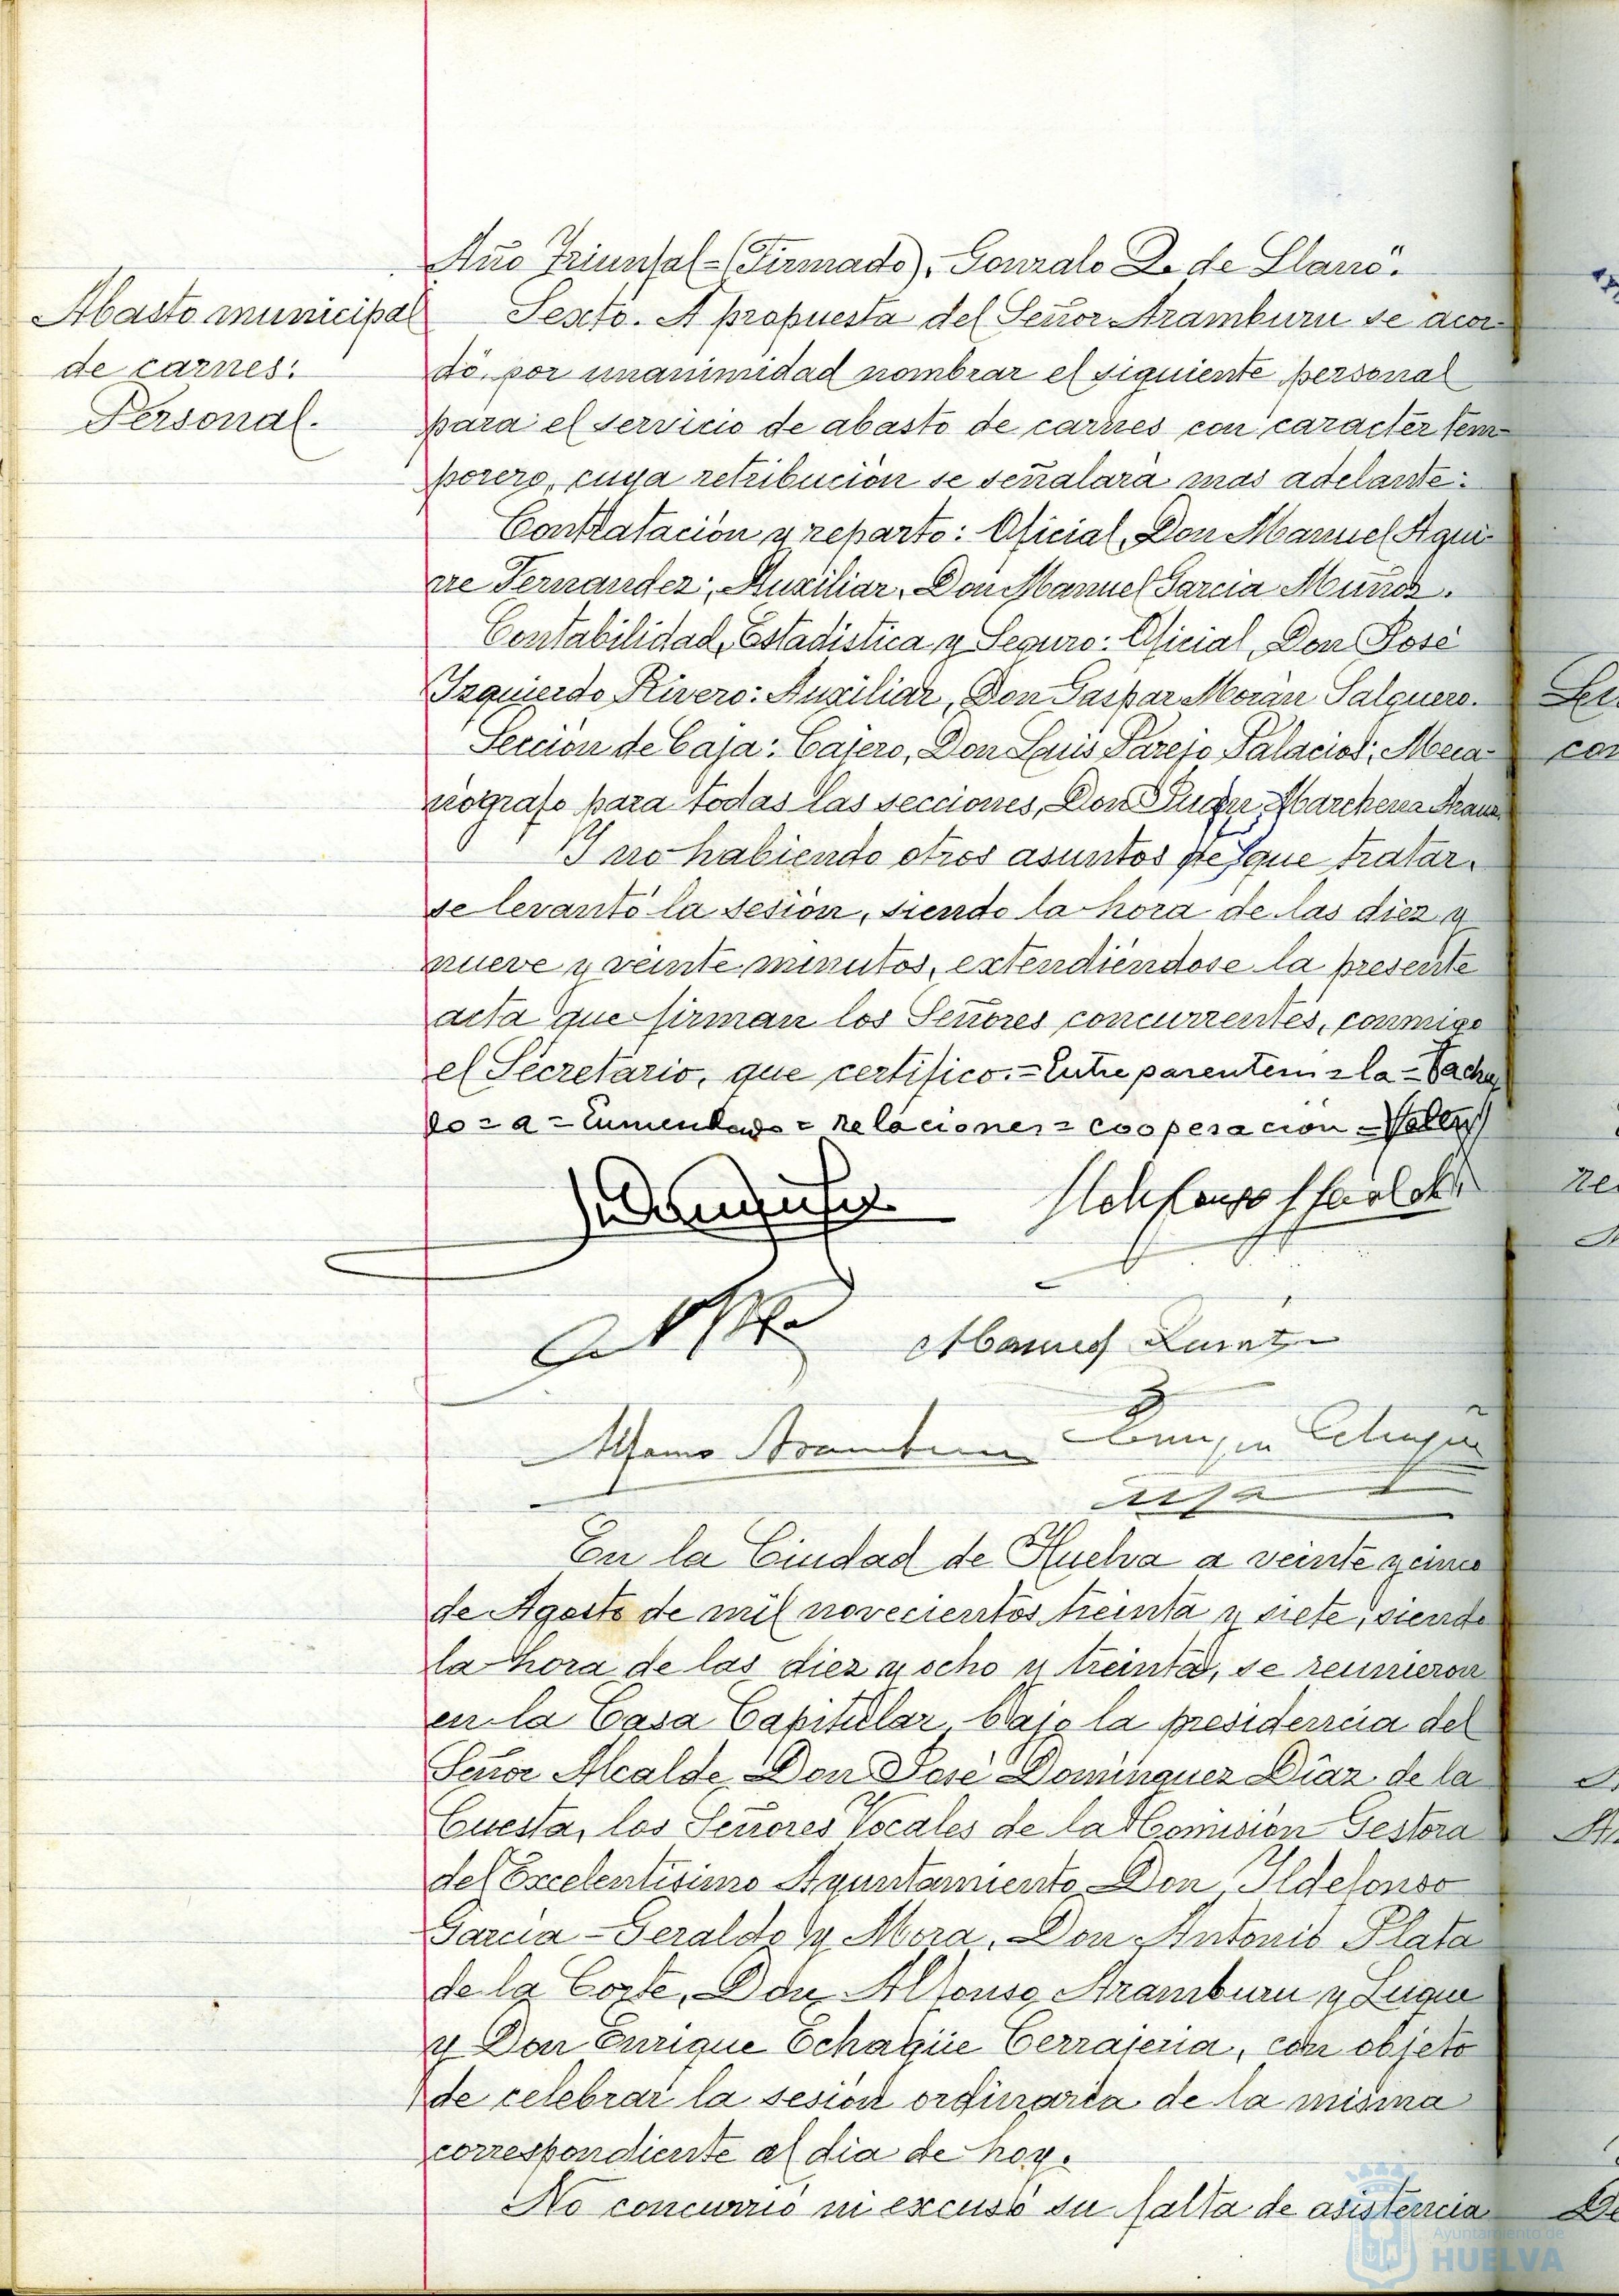 Año Triunfal-(Firmado). Gonzalo Q. de Llano".
Abasto municipal
de carnes:
Personal.
Sexto. A propuesta del Señor Aramburu se acor-
dó, por unanimidad nombrar el siguiente personal
para el servicio de abasto de carnes con caracter tem-
porero, cuya retribución se señalará mas adelante:
Contratación y reparto: Oficial, Don Manuel Agui-
rre Fernandez; Auxiliar, Don Manuel Garcia Muñoz.
Contabilidad, Estadistica y Seguro: Oficial, Don José
Izquierdo Rivero: Auxiliar, Don Gaspar Morán Salguero.
Sección de Caja: Cajero, Don Luis Parejo Palacios; Meca-
nografo para todas las secciones, Don Juan Marchena
Y no habiendo otros asuntos de que tratar,
se levantó la sesión, siendo la hora de las diez y
nueve y veinte minutos, extendiéndose la presente
acta que firman los Señores concurrentes, conmigo
el Secretario, que certifico.=Entre parentesis=la=Tacha
do=a=Enmendado=relaciones=cooperacion=Valen
Alfonso Aramburu
En la Ciudad de Huelva a veinte y cinco
de Agosto de mil novecientos treinta y siete, siendo
la hora de las diez y ocho y treinta, se reunieron
en la Casa Capitular, bajo la presidencia del
Señor Alcalde Don José Dominguez Díaz de la
Cuesta, los Señores Vocales de la Comisión Gestora
del Excelentisimo Ayuntamiento Don Ildefonso
Garcia-Geraldo y Mora, Don Antonio Plata
de la Corte, Don Alfonso Aramburu y Luque
y Don Enrique Echagüe Cerrajeria, con objeto
de celebrar la sesión ordinaria de la misma
correspondiente al dia de hoy.
No concurrió ni excusó su falta de asistencia
Ayuntamiento de
HUELVA